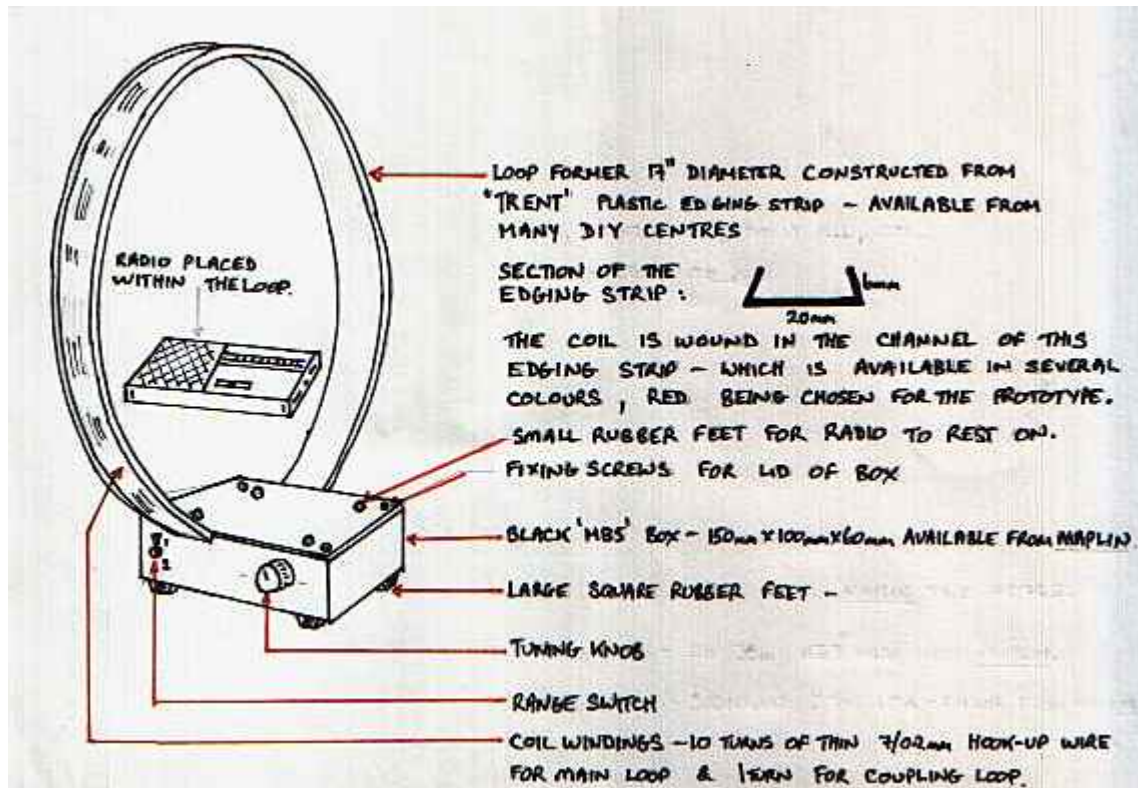 LOOP FORMER 17" DIAMETER CONSTRUCTED FROM
"TRENT" PLASTIC EDGING STRIP – AVAILABLE FROM
MANY DIY CENTRES
RADIO PLACED
WITHIN THE LOOP.
SECTION OF THE
EDGING STRIP :
6mm
20mm
THE COIL IS WOUND IN THE CHANNEL OF THIS
EDGING STRIP – WHICH IS AVAILABLE IN SEVERAL
COLOURS, RED BEING CHOSEN FOR THE PROTOTYPE.
SMALL RUBBER FEET FOR RADIO TO REST ON.
FIXING SCREWS FOR LID OF BOX
BLACK 'MB5' BOX – 150mm X 100mm X 60mm AVAILABLE FROM MAPLIN
1
2
LARGE SQUARE RUBBER FEET –
TUNING KNOB
RANGE SWITCH
COIL WINDINGS – 10 TURNS OF THIN 7/0.2mm HOOK-UP WIRE
FOR MAIN LOOP & 1 TURN FOR COUPLING LOOP.